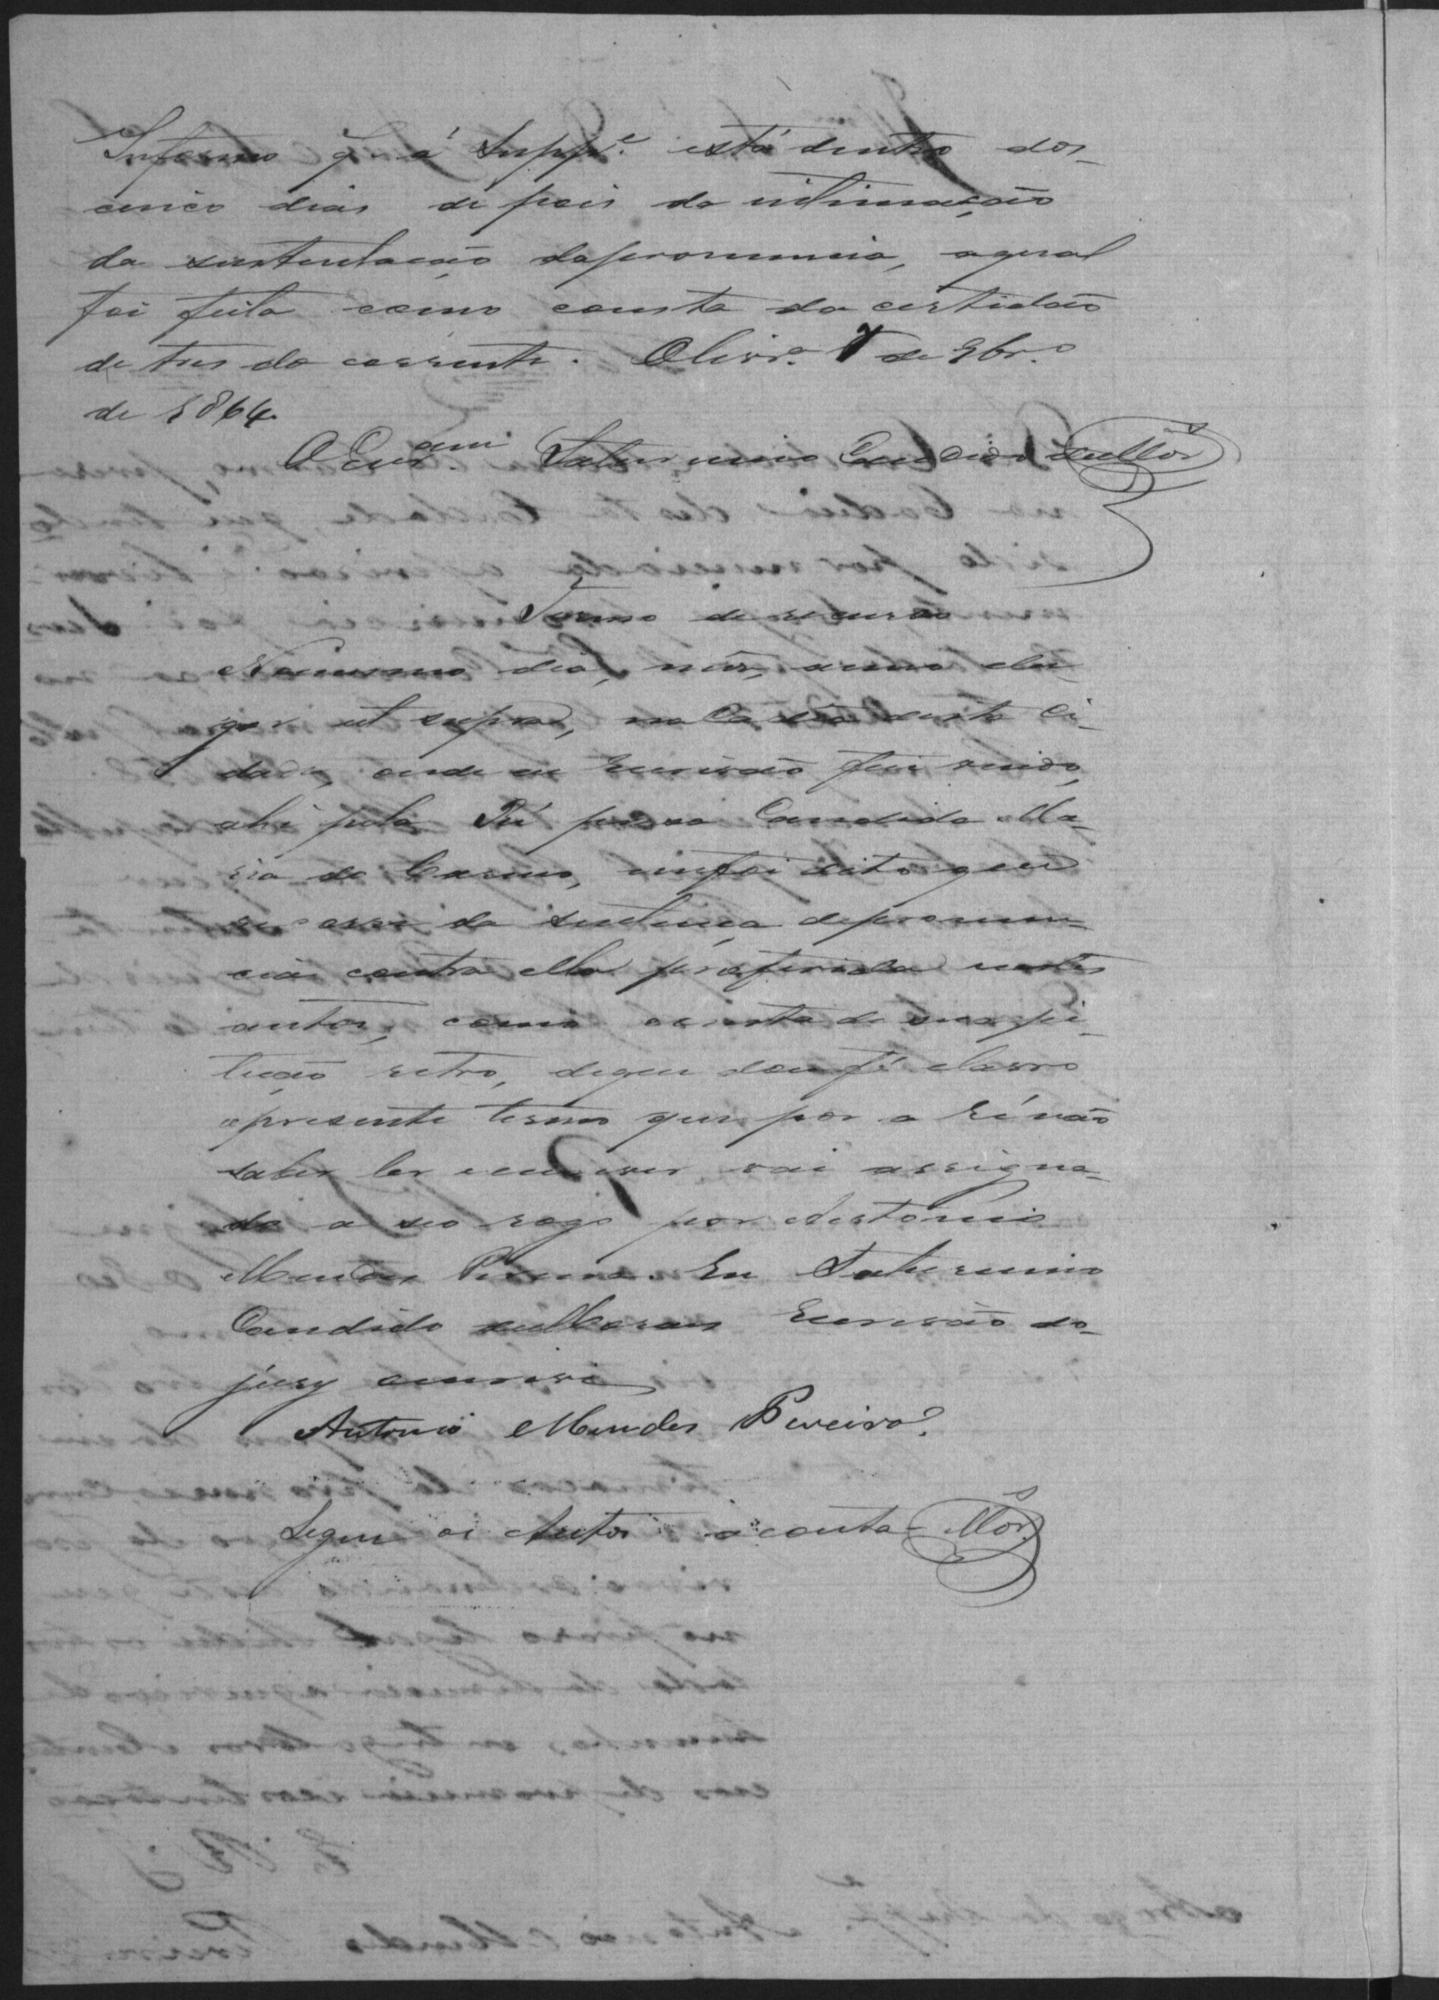 Informo q. á Supp.e está dentro dos
cinco dias de pois da intimação
da sustentação dapronuncia, aqual
foi feita como consta da certidão
de tres do corrente. Olivr.a 7 de 9br.o
de 1864.
O Escr.am Saturnino Candido
Termo de recurso
No mesmo dia, mes, anno e lu-
gar ut supra, na Cadêa desta Ci-
dade, onde eu Escrivão fui vindo,
ahi pela Ré presa Candida Ma-
ria do Carmo, mefoi dito que
recorria da sentença depronun-
cia contra ella proferida nestes
autos, como consta de sua pe-
tição retro, dequi dou fé e lavro
opresente termo que por a ré não
saber ler e escrever vai assigna-
do a seo rogo por Antonio
Mendes Pereira. Eu Saturnino
Candido Escrivão do
jury escrevi
Antonio Mendes Pereira.
Segue os Autos a conta Mor.s